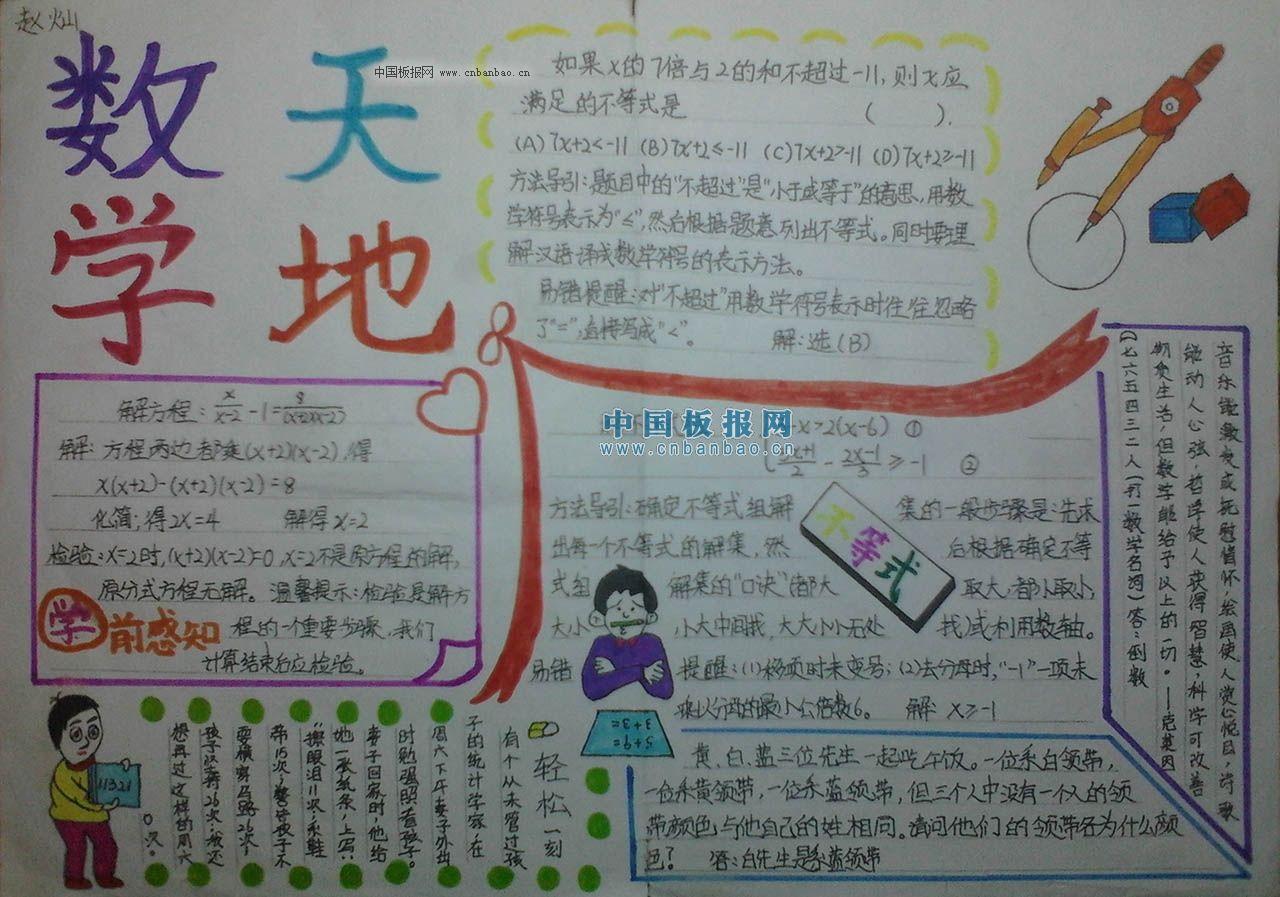 赵灿
数学
天地
中国板报网 www.cnbanbao.cn
如果x的7倍与2的和不超过-11,则x应
满足的不等式是 ( ).
(A)7x+2<-11 (B)7x+2≤-11 (C)7x+2>-11 (D)7x+2≥-11
方法导引:题目中的“不超过”是“小于或等于”的意思,用数
学符号表示为“≤”,然后根据题意列出不等式。同时要理
解汉语译成数学符号的表示方法。
易错提醒:对“不超过”用数学符号表示时往往忽略
了“=”,直接写成“<”。 解:选(B)
解方程:x/(x-2)-1=8/(x+2)(x-2)
解:方程两边都乘(x+2)(x-2),得
x(x+2)-(x+2)(x-2)=8
化简;得2x=4 解得x=2
检验:x=2时,(x+2)(x-2)=0,x=2不是原方程的解,
原分式方程无解。温馨提示:检验是解方
学前感知 程的一个重要步骤,我们
计算结束后应检验。
中国板报网
www.cnbanbao.cn
-x>2(x-6) ①
/2 - (2x-1)/3 ≥-1 ②
不等式
方法导引:确定不等式组解集的一般步骤是:先求
出每一个不等式的解集,然后根据确定不等
式组解集的“口诀”(都大取大,都小取小,
大小小大中间找,大大小小无处找)或利用数轴。
易错提醒:(1)移项时未变号;(2)去分母时,“-1”一项未
乘以分母的最小公倍数6。 解:x≥-1
音乐能激发或抚慰情怀,绘画使人赏心悦目,诗歌
能动人心弦,哲学使人获得智慧,科学可改善
物质生活,但数学能给予以上的一切。——克莱因
(1)七六五四三二人(打一数学名词)答:倒数
11321
轻松一刻
有个从未管过孩
子的统计学家,在
周六下午妻子外出
时勉强照看孩子。
妻子回家时,他给
她一张纸条,上写:
“擦眼泪11次,系鞋
带15次,警告孩子不
要横穿马路26次,
孩子坚持26次,我还
想再过这样的周六
0次。
5+9=
3+3=
黄、白、蓝三位先生一起吃午饭。一位系白领带,
一位系黄领带,一位系蓝领带,但三个人中没有一个人的领
带颜色与他自己的姓相同。请问他们的领带各为什么颜
色? 答:白先生是系蓝领带